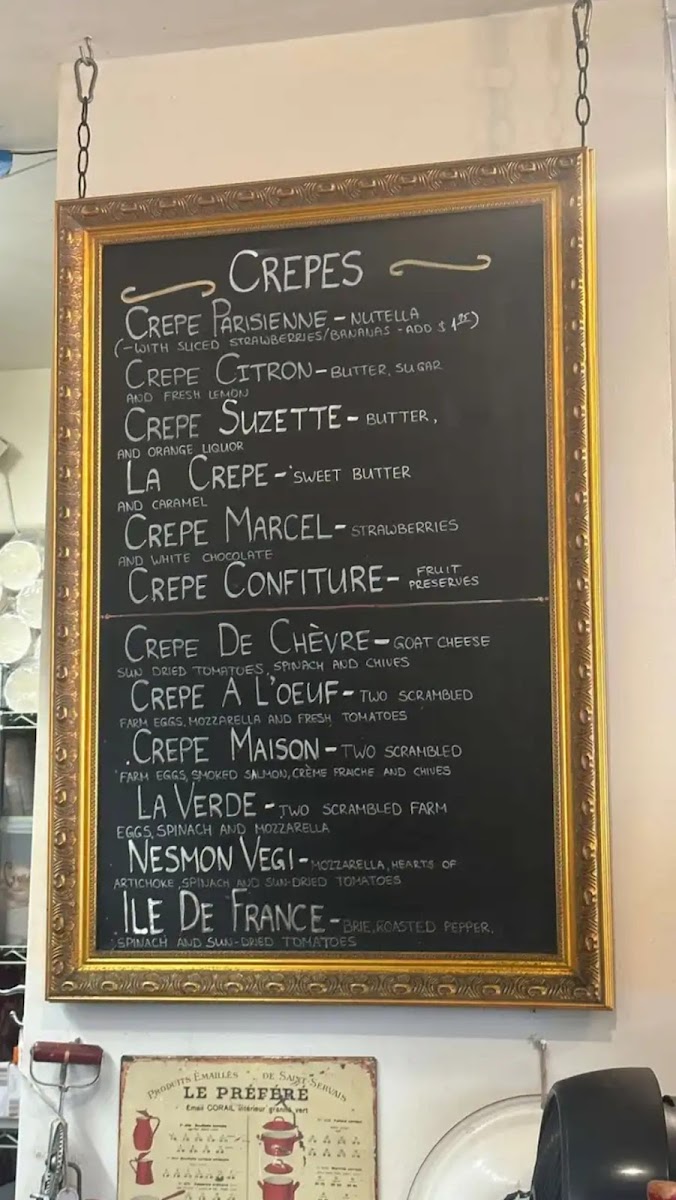 CREPES
CREPE PARISIENNE - NUTELLA
(-WITH SLICED STRAWBERRIES/BANANAS - ADD $ 1.25)
CREPE CITRON - BUTTER, SUGAR
AND FRESH LEMON
CREPE SUZETTE - BUTTER,
AND ORANGE LIQUOR
LA CREPE - SWEET BUTTER
AND CARAMEL
CREPE MARCEL - STRAWBERRIES
AND WHITE CHOCOLATE
CREPE CONFITURE - FRUIT
PRESERVES
CREPE DE CHÈVRE - GOAT CHEESE
SUN DRIED TOMATOES, SPINACH AND CHIVES
CREPE A L'OEUF - TWO SCRAMBLED
FARM EGGS, MOZZARELLA AND FRESH TOMATOES
CREPE MAISON - TWO SCRAMBLED
FARM EGGS, SMOKED SALMON, CRÈME FRAICHE AND CHIVES
LA VERDE - TWO SCRAMBLED FARM
EGGS, SPINACH AND MOZZARELLA
NESMON VEGI - MOZZARELLA, HEARTS OF
ARTICHOKE, SPINACH AND SUN-DRIED TOMATOES
ILE DE FRANCE - BRIE, ROASTED PEPPER,
SPINACH AND SUN-DRIED TOMATOES
PRODUITS ÉMAILLÉS DE SAINT-SERVAIS
LE PRÉFÉRÉ
Email CORAIL intérieur granité vert